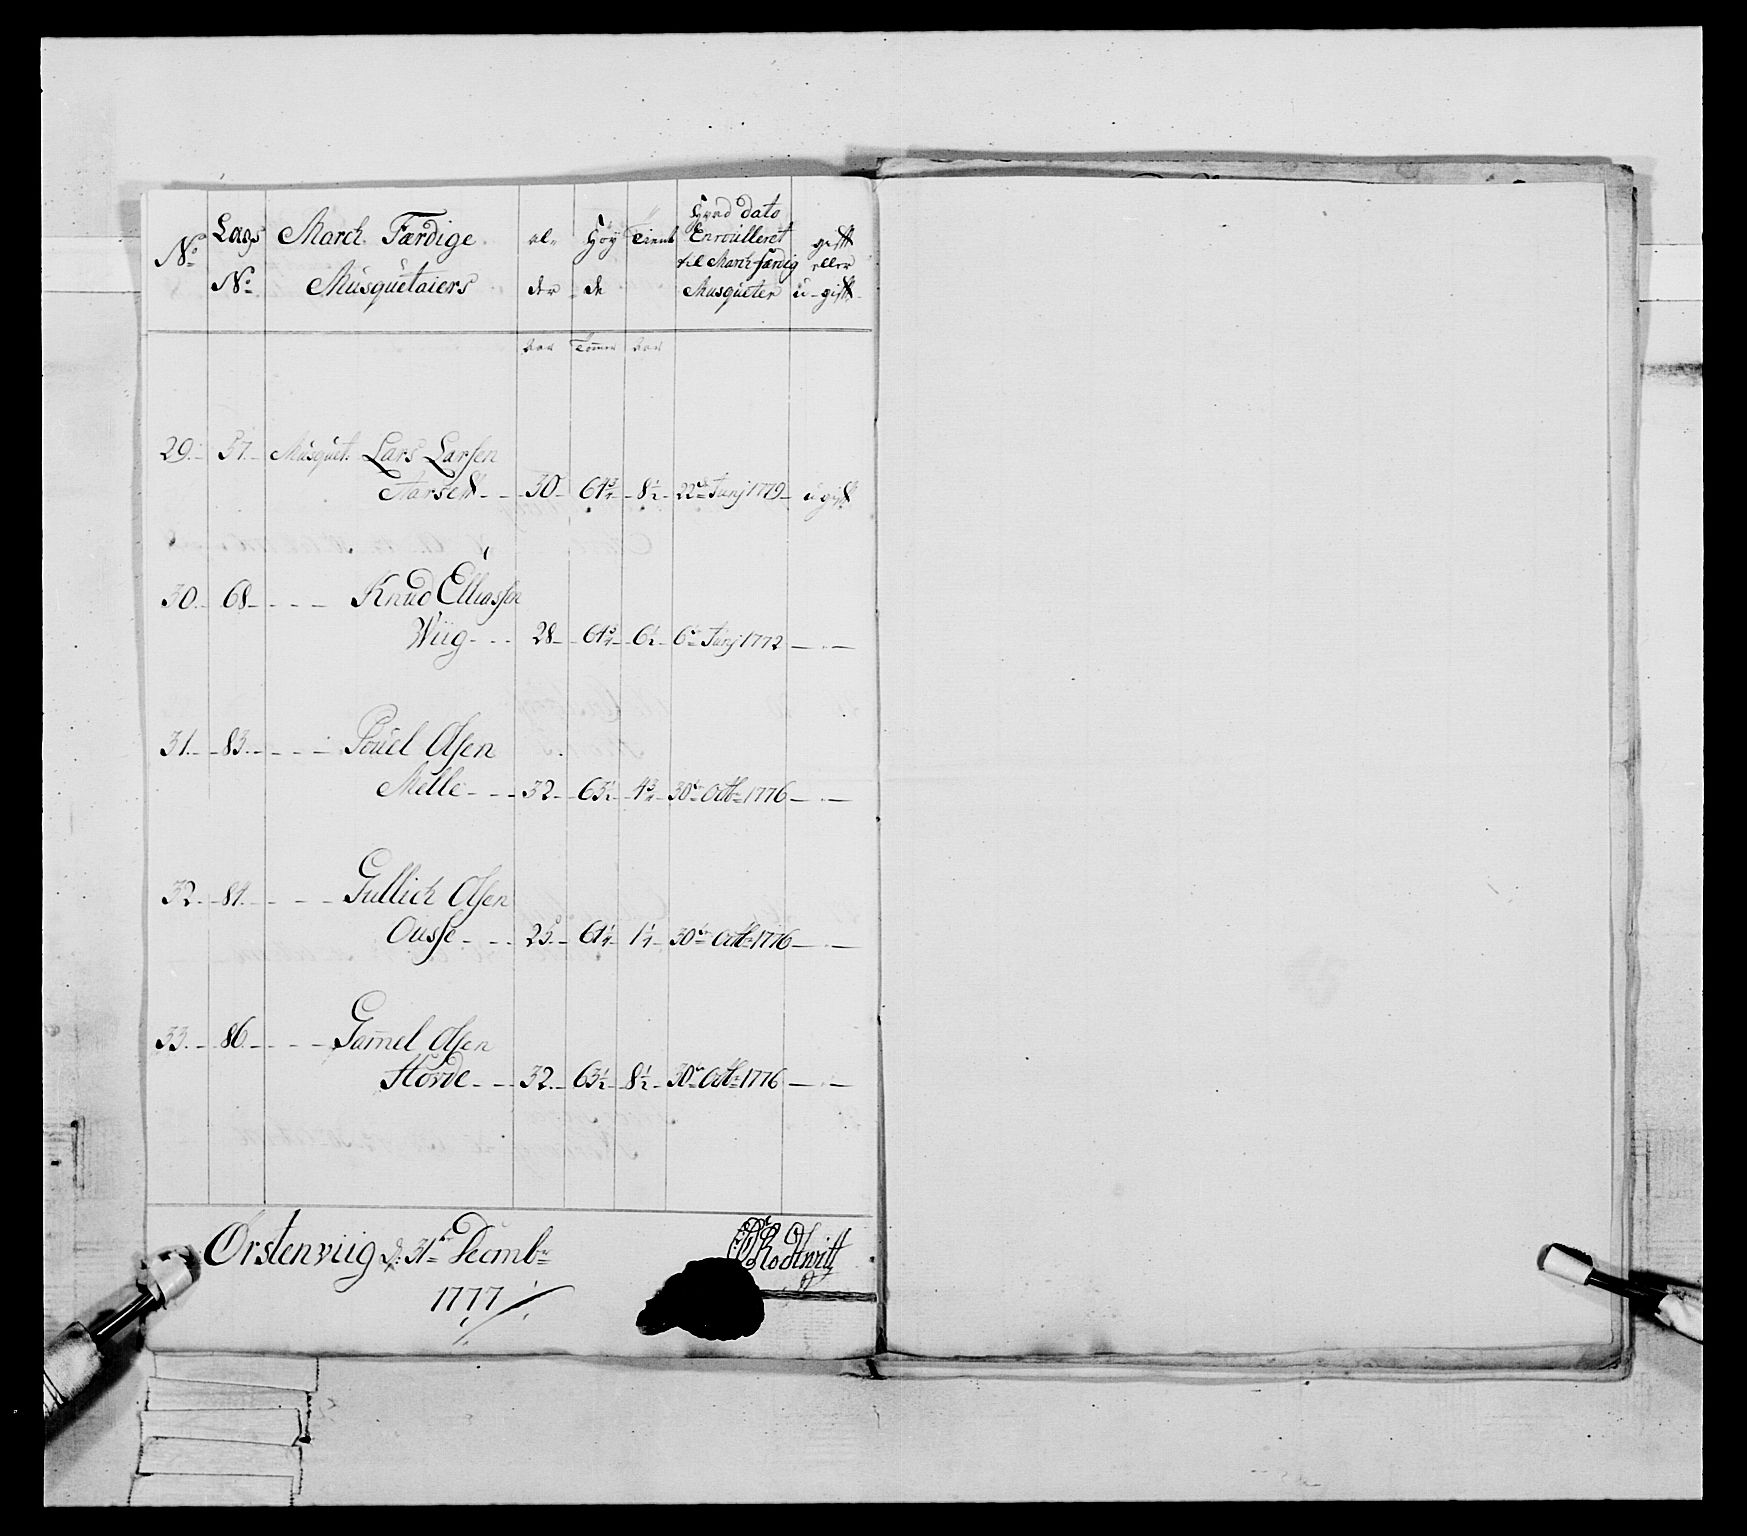 No Lags No March Færdige Musquetaiers al- der Höy de Tient Hvad dato Enroulleret til March færdig Musqueter gift eller u-gift
Aar Tommer Aar
29. 57. Musquet. Lars Larsen
Aarseth 30 61¾ 8½ 22de Junj 1779 ugift
30. 68 Knud Elliassen
Wiig 28 61¾ 6½ 6te Junj 1772
31. 83. Pouel Olsen
Melle 32 63½ 4¾ 30te Octbr 1776
32. 84. Gullich Olsen
Ousse 25. 61¼ 1¼ 30te Octbr 1776
33. 86 Gam̄el Olsen
Hovde 32. 63½ 8½ 30te Octbr 1776
Ørstenviig d: 31te Decembr
1777
Rodtwitt